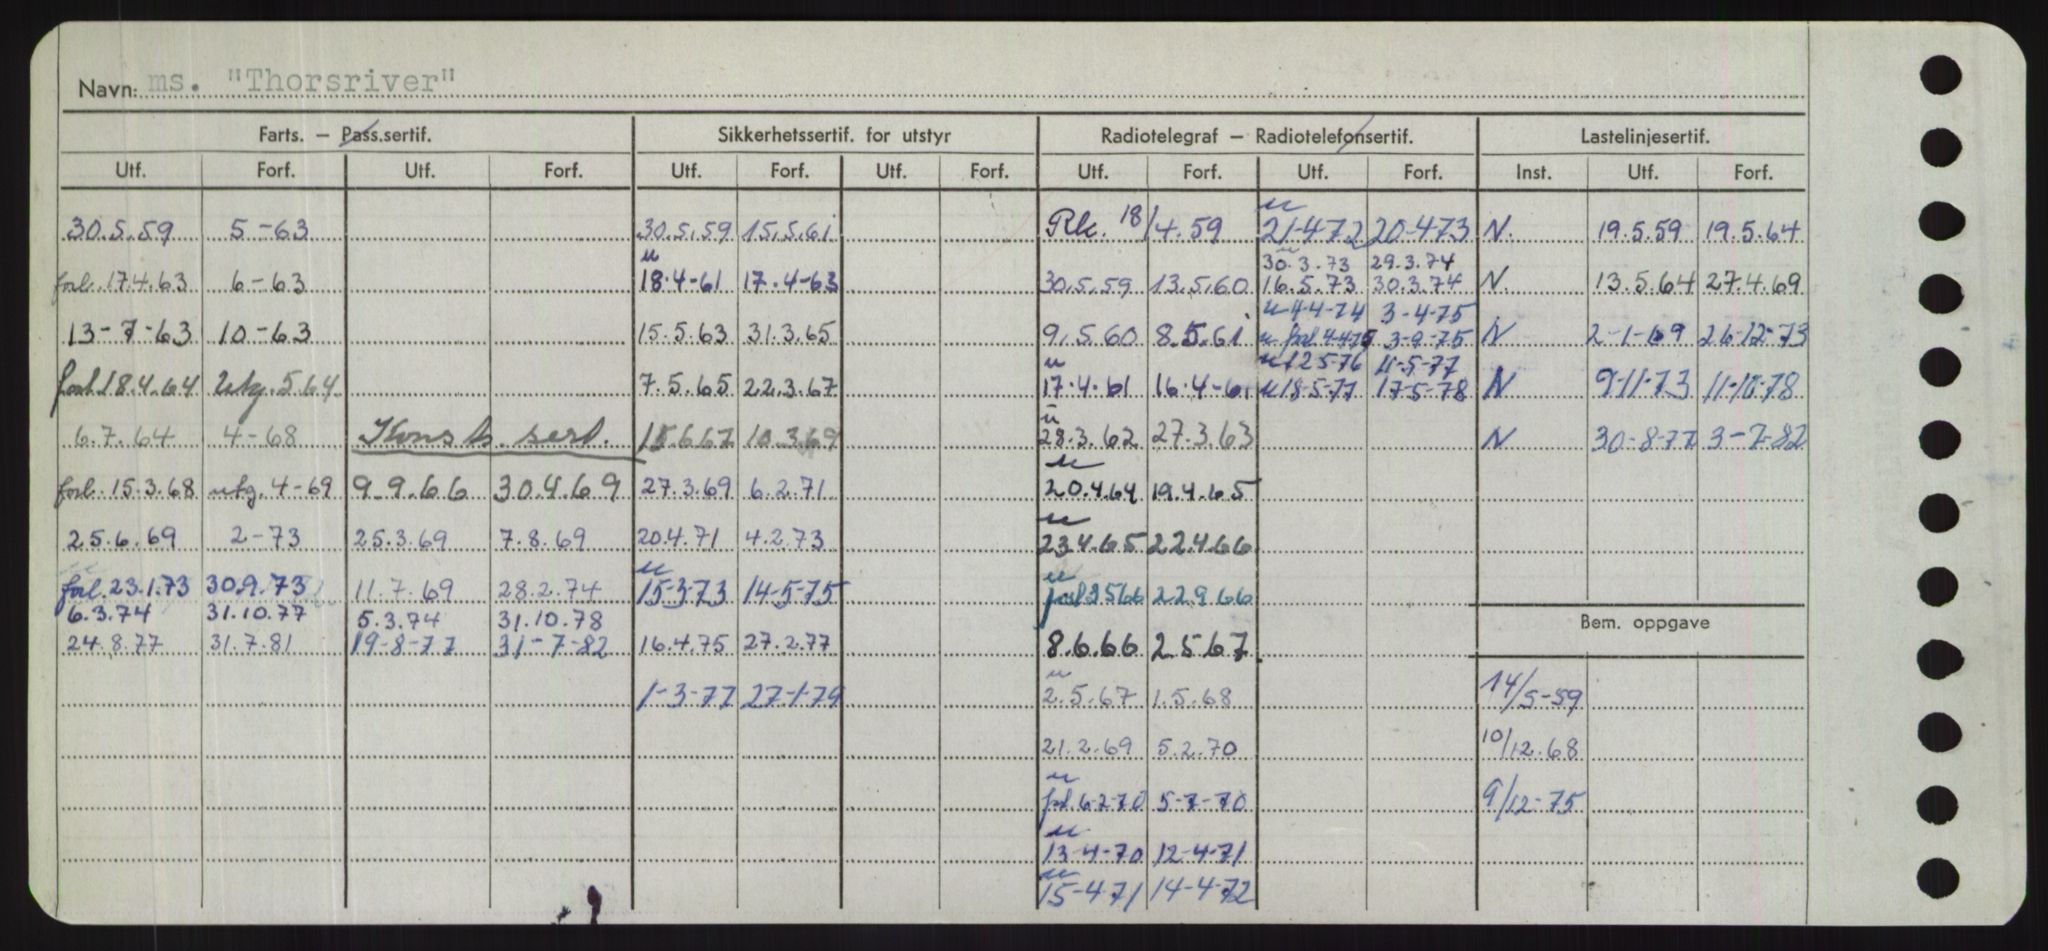 Navn: ms. "Thorsriver"
Farts. — Pass.sertif. Sikkerhetssertif. for utstyr Radiotelegraf — Radiotelefonsertif. Lastelinjesertif.
Utf. Forf. Utf. Forf. Utf. Forf. Utf. Forf. Utf. Forf. Utf. Forf. Inst. Utf. Forf.
30.5.59 5-63 30.5.59 15.5.61 Rk. 18/4.59 u 21-4-72 20-4-73 N. 19.5.59 19.5.64
30.3.73 29.3.74
forl. 17.4.63 6-63 u 18.4-61 17.4-63 30.5.59 13.5.60 u 16.5.73 30.3.74 N. 13.5.64 27.4.69
u 4-4-74 3-4-75
13-7-63 10-63 15.5.63 31.3.65 9.5.60 8.5.61 u forl 4-4-75 3-9-75 N 2-1-69 26-12-73
u 12-5-76 11-5-77
forl. 18.4.64 utg. 5.64 7.5.65 22.3.67 u 17.4.61 16.4-61 u 18-5-77 17-5-78 N 9-11-73 11-10-78
6.7.64 4-68 Konstr. sert. 15.6.67 10.3.69 u 28.3.62 27.3.63 N 30-8-77 3-7-82
forl. 15.3.68 utg. 4-69 9.9.66 30.4.69 27.3.69 6.2.71 u 20.4.64 19.4.65
25.6.69 2-73 25.3.69 7.8.69 20.4.71 4.2.73 u 23.4.65 22.4.66
forl. 23.1.73 30.9.73 11.7.69 28.2.74 u 15-3-73 14-5-75 u forl 2566 22966
6.3.74 31.10.77 5.3.74 31.10.78
Bem. oppgave
24.8.77 31.7.81 19-8-77 31-7-82 16.4.75 27.2.77 8.6.66 2.5.67
1-3-77 27-1-79 u 2.5.67 1.5.68 14/5-59
21.2.69 5.2.70 10/12.68
u forl. 6-2-70 5-7-70 9/12-75
u 13-4-70 12-4-71
u 15-4-71 14-4-72